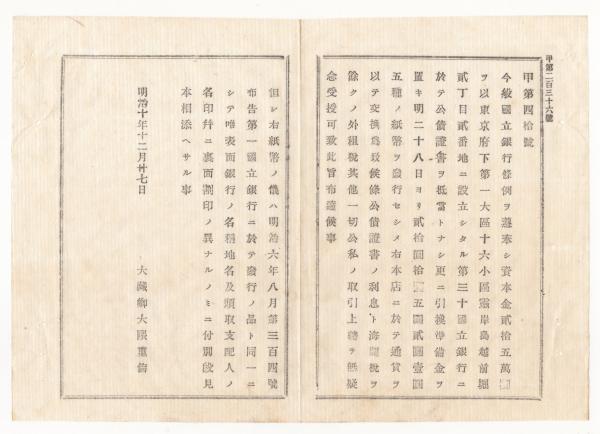 甲第二百三十六號
甲第四拾號
今般國立銀行條例ヲ遵奉シ資本金貳拾五萬圓
ヲ以東京府下第一大區十六小區靈岸島越前堀
貳丁目貳番地ニ設立シタル第三十國立銀行ニ
於テ公債證書ヲ抵當トナシ更ニ引換準備金ヲ
置キ明二十八日ヨリ貳拾圓拾圓五圓貳圓壹圓
五種ノ紙幣ヲ發行セシメ右本店ニ於テ通貨ヲ
以テ交換爲致候條公債證書ノ利息ト海關稅ヲ
除クノ外租稅其他一切公私ノ取引上總テ無疑
念受授可致此旨布達候事
但シ右紙幣ノ儀ハ明治六年八月第三百四號
布告第一國立銀行ニ於テ發行ノ品ト同一ニ
シテ唯表面銀行ノ名稱地名及頭取支配人ノ
名印幷ニ裏面割印ノ異ナルノミニ付別段見
本相添ヘサル事
明治十年十二月廿七日
大藏卿大隈重信